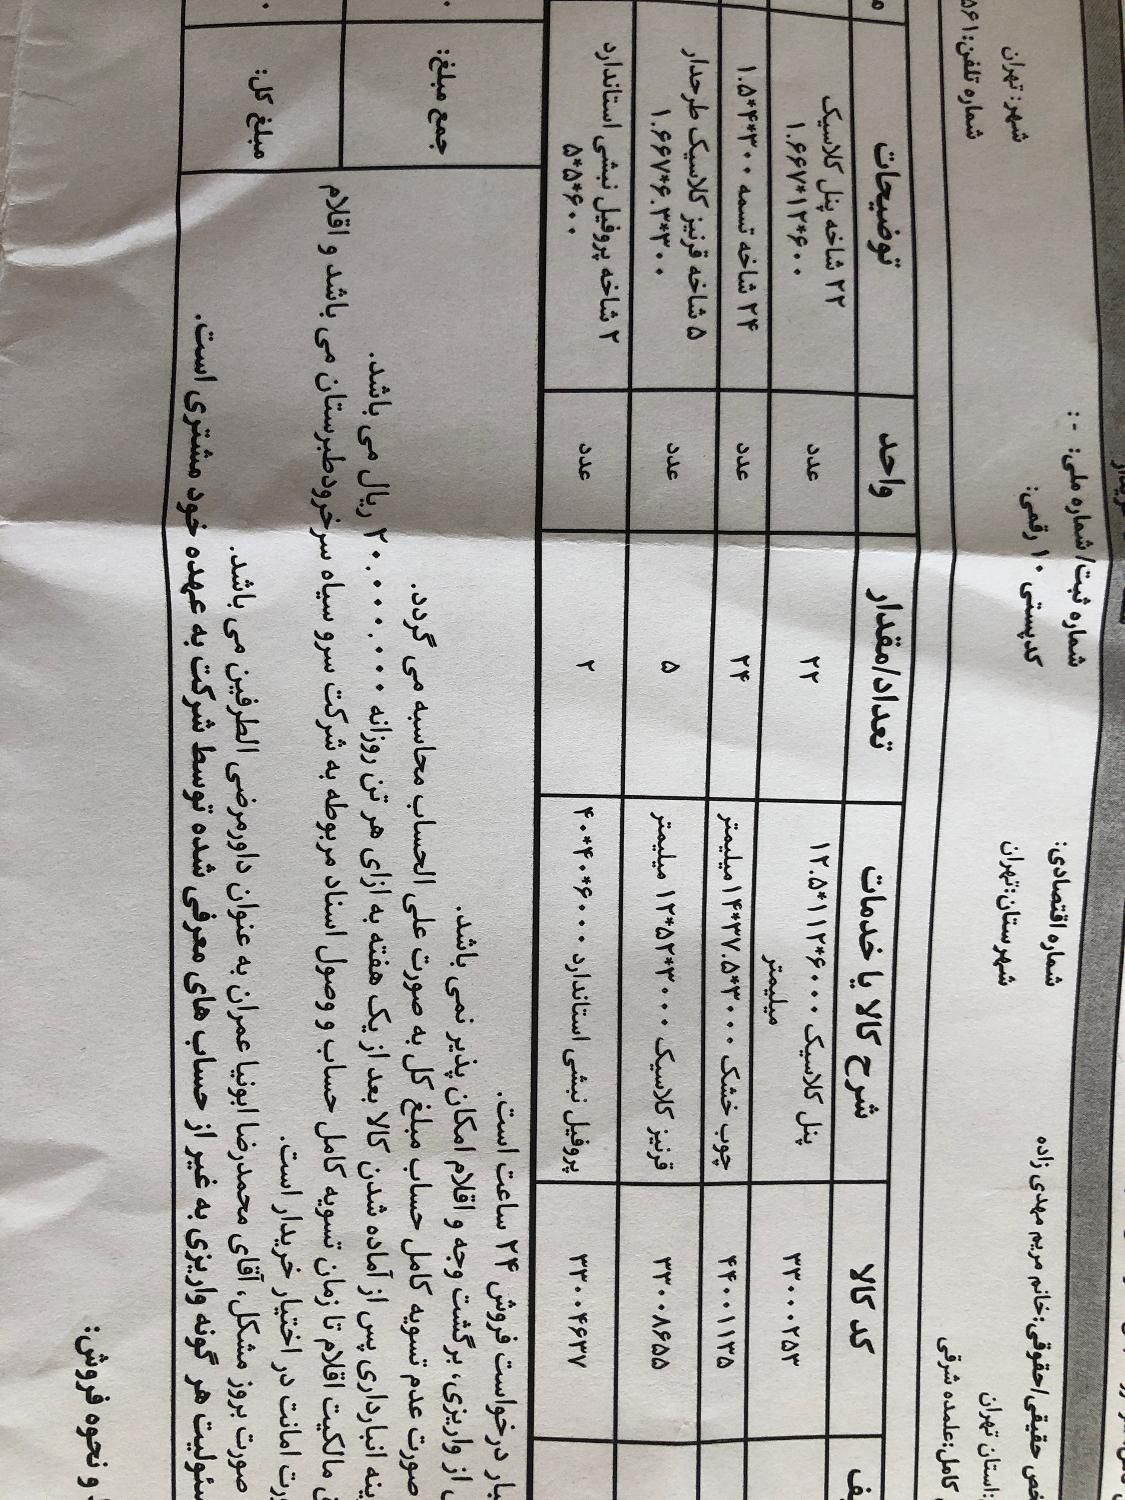 شماره اقتصادی:
شماره ثبت/ شماره ملی: -:
حقیقی/حقوقی:خانم مریم مهدی زاده
شهرستان:تهران
کدپستی ۱۰ رقمی:
شهر: تهران
:استان تهران
کامل:علمده شرقی
شماره تلفن:
کد کالا
شرح کالا یا خدمات
تعداد/مقدار
واحد
توضیحات
۳۳۰۰۰۲۵۳
پنل کلاسیک ۶۰۰۰*۱۱۲*۱۲.۵
میلیمتر
۲۲
عدد
۲۲ شاخه پنل کلاسیک
۱.۶۶۷*۱۲*۶۰۰
۴۴۰۰۱۱۳۵
چوب خشک ۳۰۰۰*۳۷.۵*۱۴میلیمتر
۲۴
عدد
۲۴ شاخه تسمه ۳۰۰*۴*۱.۵
۳۳۰۰۸۶۵۵
قرنیز کلاسیک ۳۰۰۰*۵۲*۱۲ میلیمتر
۵
عدد
۵ شاخه قرنیز کلاسیک طرحدار
۱.۶۶۷*۶.۳*۳۰۰
۳۳۰۰۴۶۳۷
پروفیل نبشی استاندارد ۶۰۰۰*۴۰*۴۰
۲
عدد
۲ شاخه پروفیل نبشی استاندارد
۵*۵*۶۰۰
جمع مبلغ:
مبلغ کل:
درخواست فروش ۲۴ ساعت است.
از واریزی، برگشت وجه و اقلام امکان پذیر نمی باشد.
صورت عدم تسویه کامل حساب مبلغ کل به صورت علی الحساب محاسبه می گردد.
انبارداری پس از آماده شدن کالا بعد از یک هفته به ازای هر تن روزانه ۲.۰۰۰.۰۰۰ ریال می باشد.
مالکیت اقلام تا زمان تسویه کامل حساب و وصول اسناد مربوطه به شرکت سرو سیاه سرخرودطبرستان می باشد و اقلام
امانت در اختیار خریدار است.
صورت بروز مشکل، آقای محمدرضا ابونیا عمران به عنوان داورمرضی الطرفین می باشد.
هر گونه واریزی به غیر از حساب های معرفی شده توسط شرکت به عهده خود مشتری است.
و نحوه فروش: